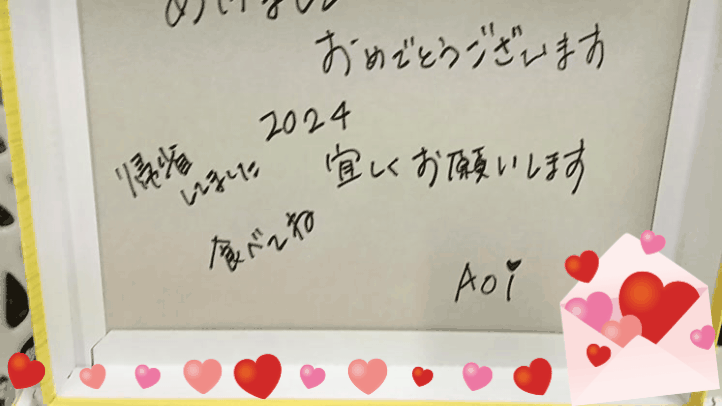 あけまして
おめでとうございます
2024
帰省
しました
宜しくお願いします
食べてね
Aoi